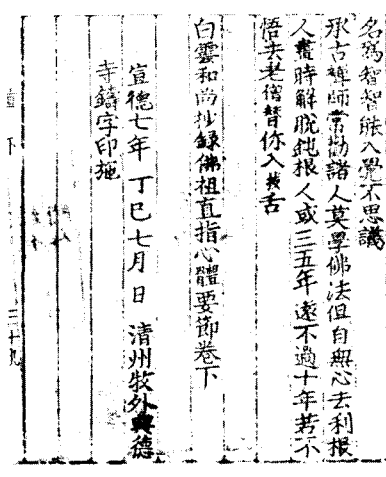 名為智智眦入覺不思議
承古禪師常勸諸人莫學佛法但自無心去利根
人晝時解脫鈍根人或三五年遠不過十年若不
悟去老僧替你入拔舌
白雲和尚抄錄佛祖直指心體要節卷下
宣德七年丁巳七月 日 清州牧外興德
寺鑄字印施
下 三十九